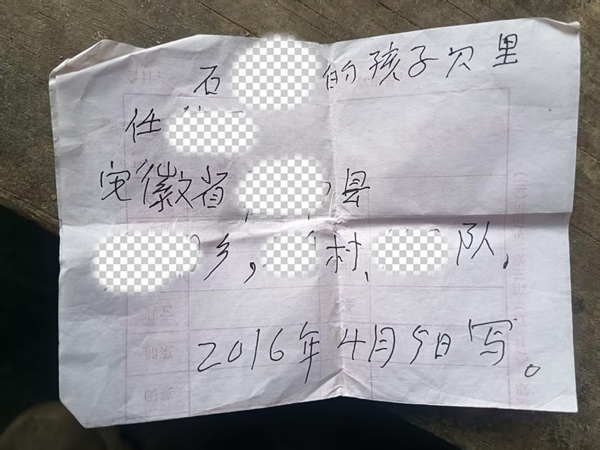 石 的孩子 里
任
安徽省 县
乡, 村、 队,
2016年4月9日写。